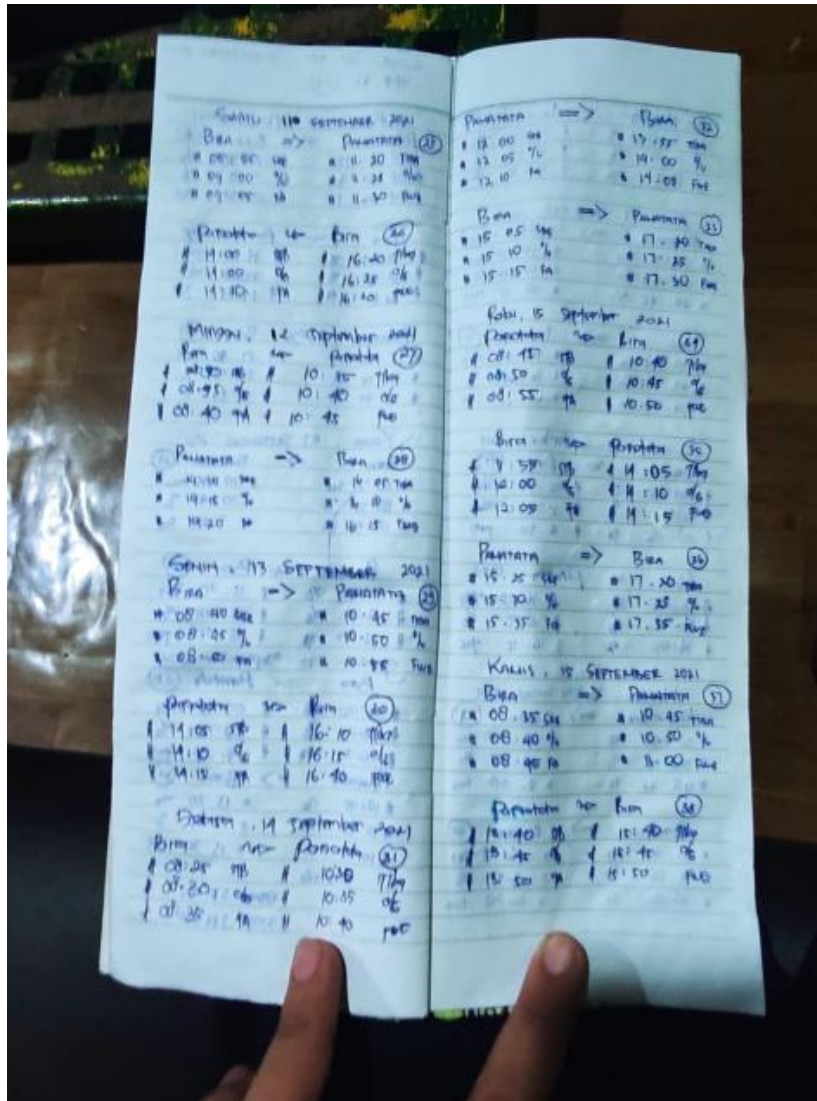 SABTU, 11 SEPTEMBER 2021
BIRA => PAMATATA (25)
09 00 % 11. 25 %
09. 05 FA 11. 30 FWE
Pamatata => Bira (26)
14:00 SB 16:20 Tiba
14:05 % 16:25 %
14:10 FA 16:30 FWE
Minggu, 12 September 2021
Bira => Pamatata (27)
08:30 SB 10:35 Tiba
08:35 % 10:40 %
08:40 FA 10:45 FWE
PAMATATA => BIRA (28)
14:10 16. 05 TIBA
14:15 % 16. 10 %
14:20 FA 16. 15 FWE
SENIN, 13 SEPTEMBER 2021
BIRA => PAMATATA (29)
08. 40 10. 45 TIBA
08. 45 % 10. 50 %
08. 50 FA 10. 55 FWE
Pamatata => Bira (30)
14:05 SB 16:10 Tiba
14:10 % 16:15 %
14:15 FA 16:20 FWE
Selasa, 14 September 2021
Bira => Pamatata (31)
08:25 SB 10:30 Tiba
08:30 % 10:35 %
08:35 FA 10:40 FWE
PAMATATA => BIRA (32)
12 00 13. 55 TIBA
12 05 % 14. 00 %
12 10 FA 14. 05 FWE
BIRA => PAMATATA (33)
15 05 17. 20 TIBA
15 10 % 17. 25 %
15. 15 FA 17. 30 FWE
Rabu, 15 September 2021
Pamatata => Bira (34)
08:45 SB 10:40 Tiba
08:50 % 10:45 %
08:55 FA 10:50 FWE
Bira => Pamatata (35)
11:55 SB 14:05 Tiba
12:00 % 14:10 %
12:05 FA 14:15 FWE
PAMATATA => BIRA (36)
15. 25 17. 20 TIBA
15. 30 % 17. 25 %
15. 35 FA 17. 35 FWE
KAMIS, 15 SEPTEMBER 2021
BIRA => PAMATATA (37)
08. 35 10. 45 TIBA
08. 40 % 10. 50 %
08. 45 FA 11. 00 FWE
Pamatata => Bira (38)
13:40 SB 15:40 Tiba
13:45 % 15:45 %
13:50 FA 15:50 FWE